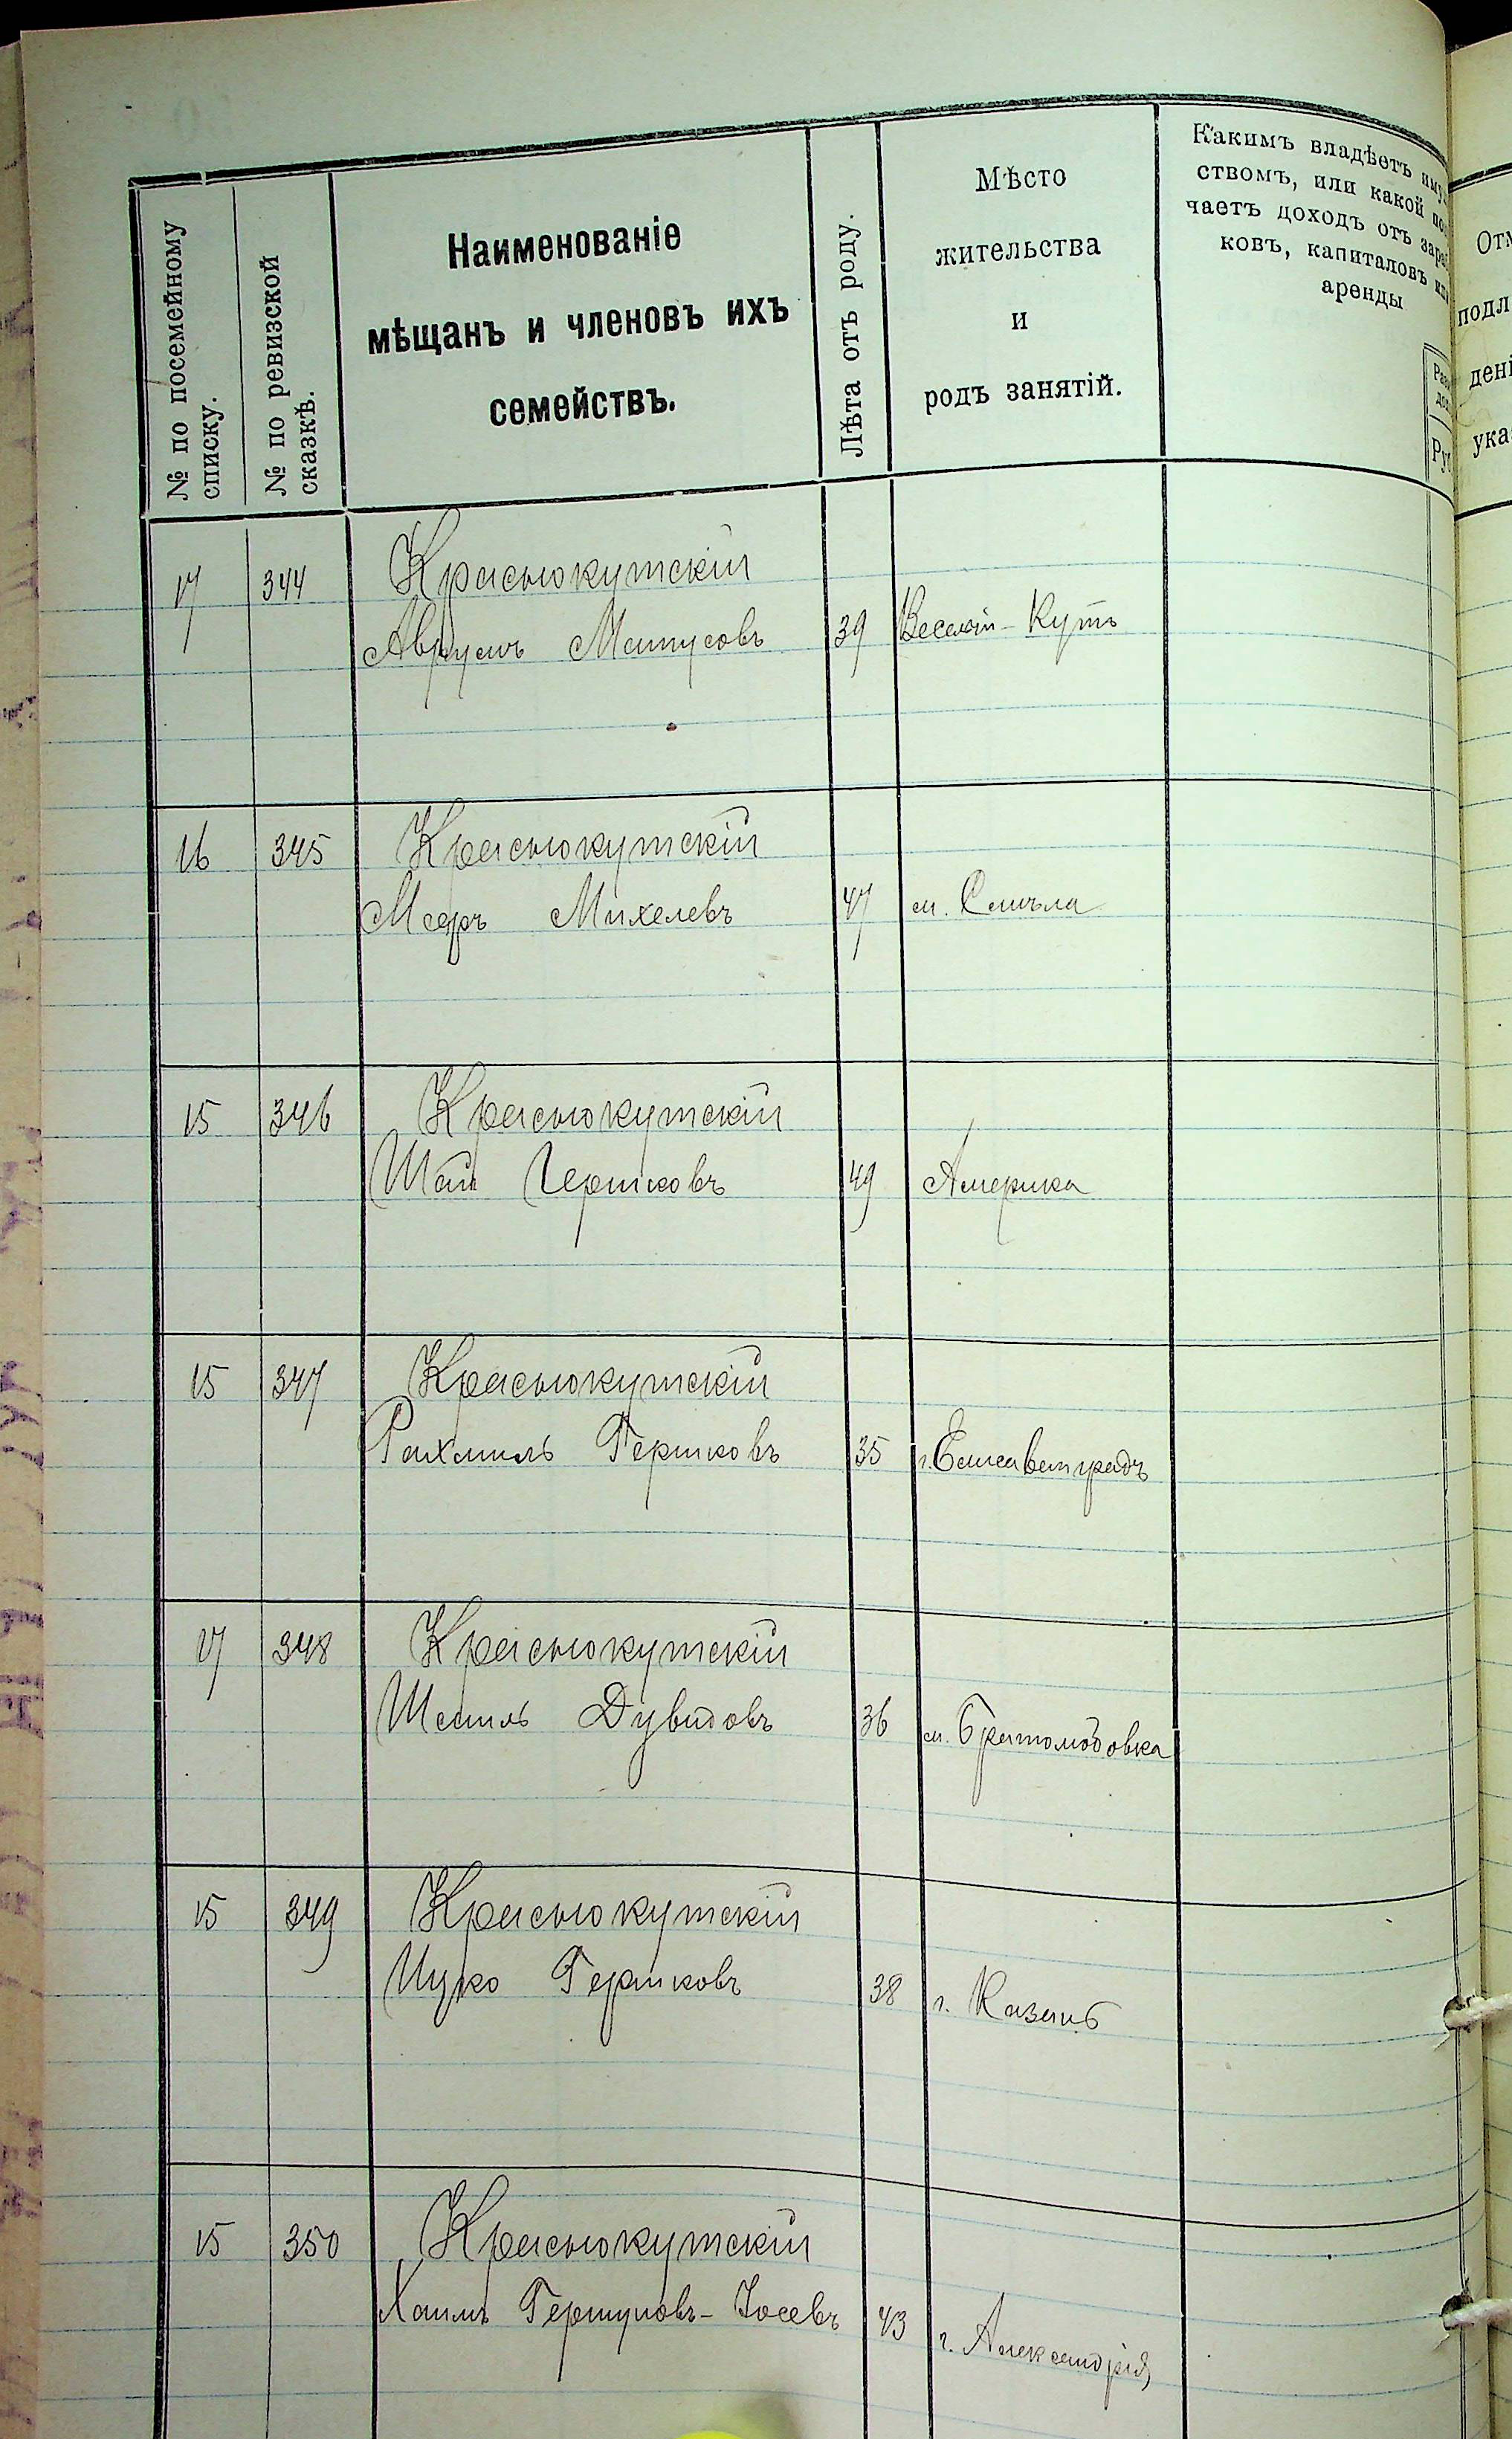 № по посемейному
списку.
№ по ревизской
сказкѣ.
Наименованіе
мѣщанъ и членовъ ихъ
семействъ.
Лѣта отъ роду.
Мѣсто
жительства
и
родъ занятій.
Какимъ владѣетъ
ствомъ, или какой
чаетъ доходъ отъ
ковъ, капиталовъ
аренды
17 344 Краснокутскій
Аврумъ Матусовъ 39 Веселый-Кутъ
16 345 Краснокутскій
Меръ Михелевъ 47 м. Смѣла
15 346 Краснокутскій
Шая Гершковъ 49 Америка
15 347 Краснокутскій
Рахмиль Гершковъ 35 г. Елисаветградъ
17 348 Краснокутскій
Шмиль Дувидовъ 36 м. Братолюбовка
15 349 Краснокутскій
Ицко Гершковъ 38 г. Казань
15 350 Краснокутскій
Хаимъ Гершуновъ-Іосевъ 43 г. Александрія